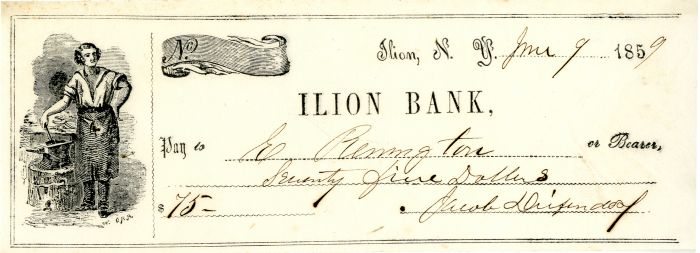 No.
Ilion, N. Y. June 9 1859
ILION BANK,
Pay to E Remington or Bearer,
Seventy five Dollars
$ 75- Jacob Diefendorf